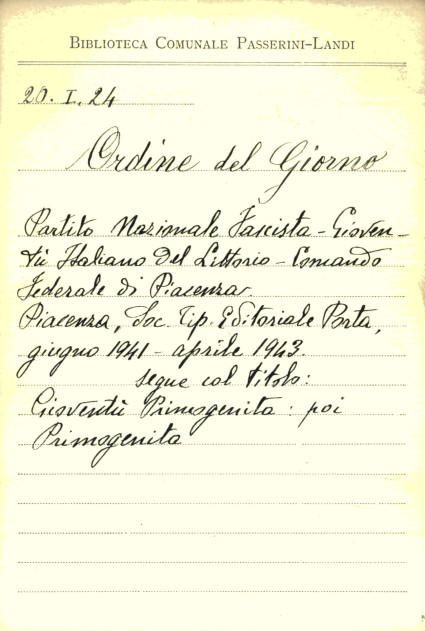 BIBLIOTECA COMUNALE PASSERINI-LANDI
20. I. 24
Ordine del Giorno
Partito Nazionale Fascista - Gioven-
tù Italiano del Littorio - Comando
Federale di Piacenza.
Piacenza, Soc. Tip. Editoriale Porta,
giugno 1941 - aprile 1943.
segue col titolo:
Gioventù Primogenita: poi
Primogenita